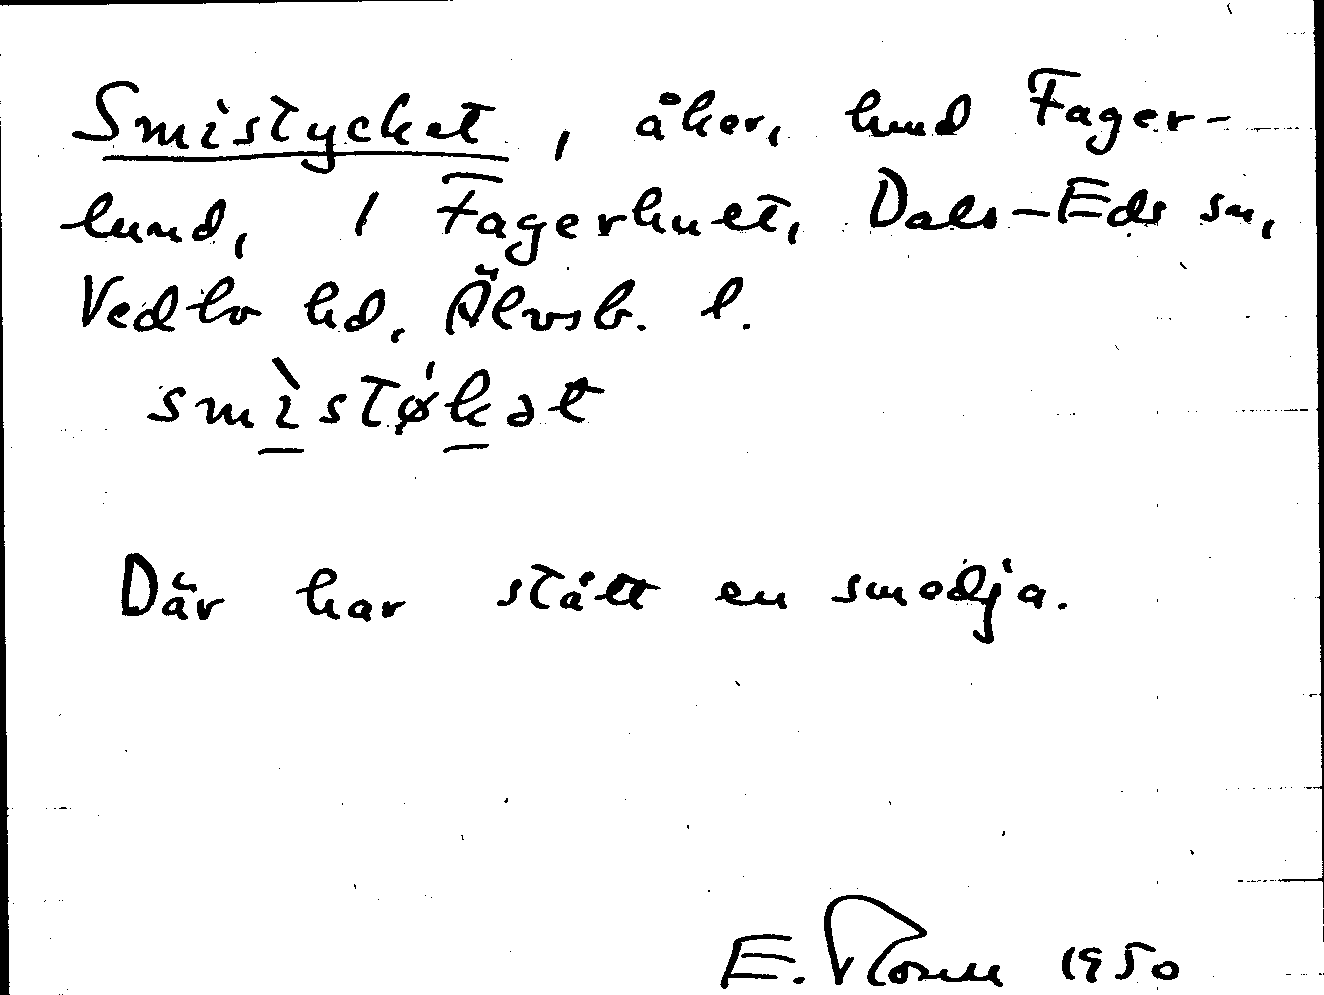 Smistycket, åker, hmd Fager-
lund, 1 Fagerhult, Dals-Eds sn,
Vedbo hd, Älvsb. l.
smìstǿkət
Där har stått en smedja.
E. 1950